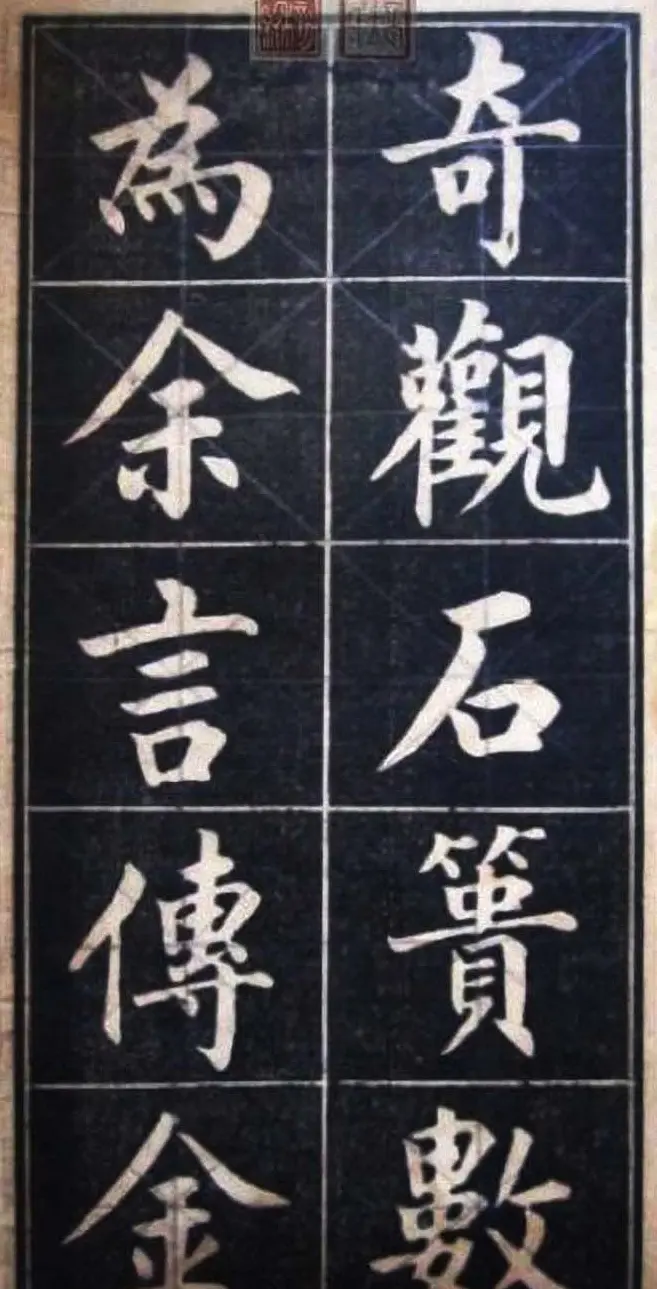 奇觀石簣數
為余言傳金